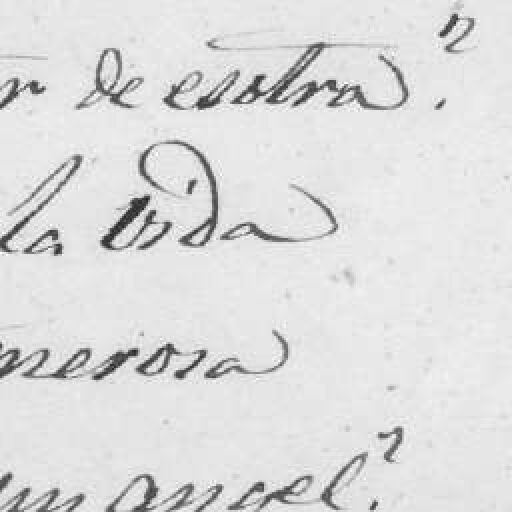 r de esotra?
la vida
merosa
un angel?